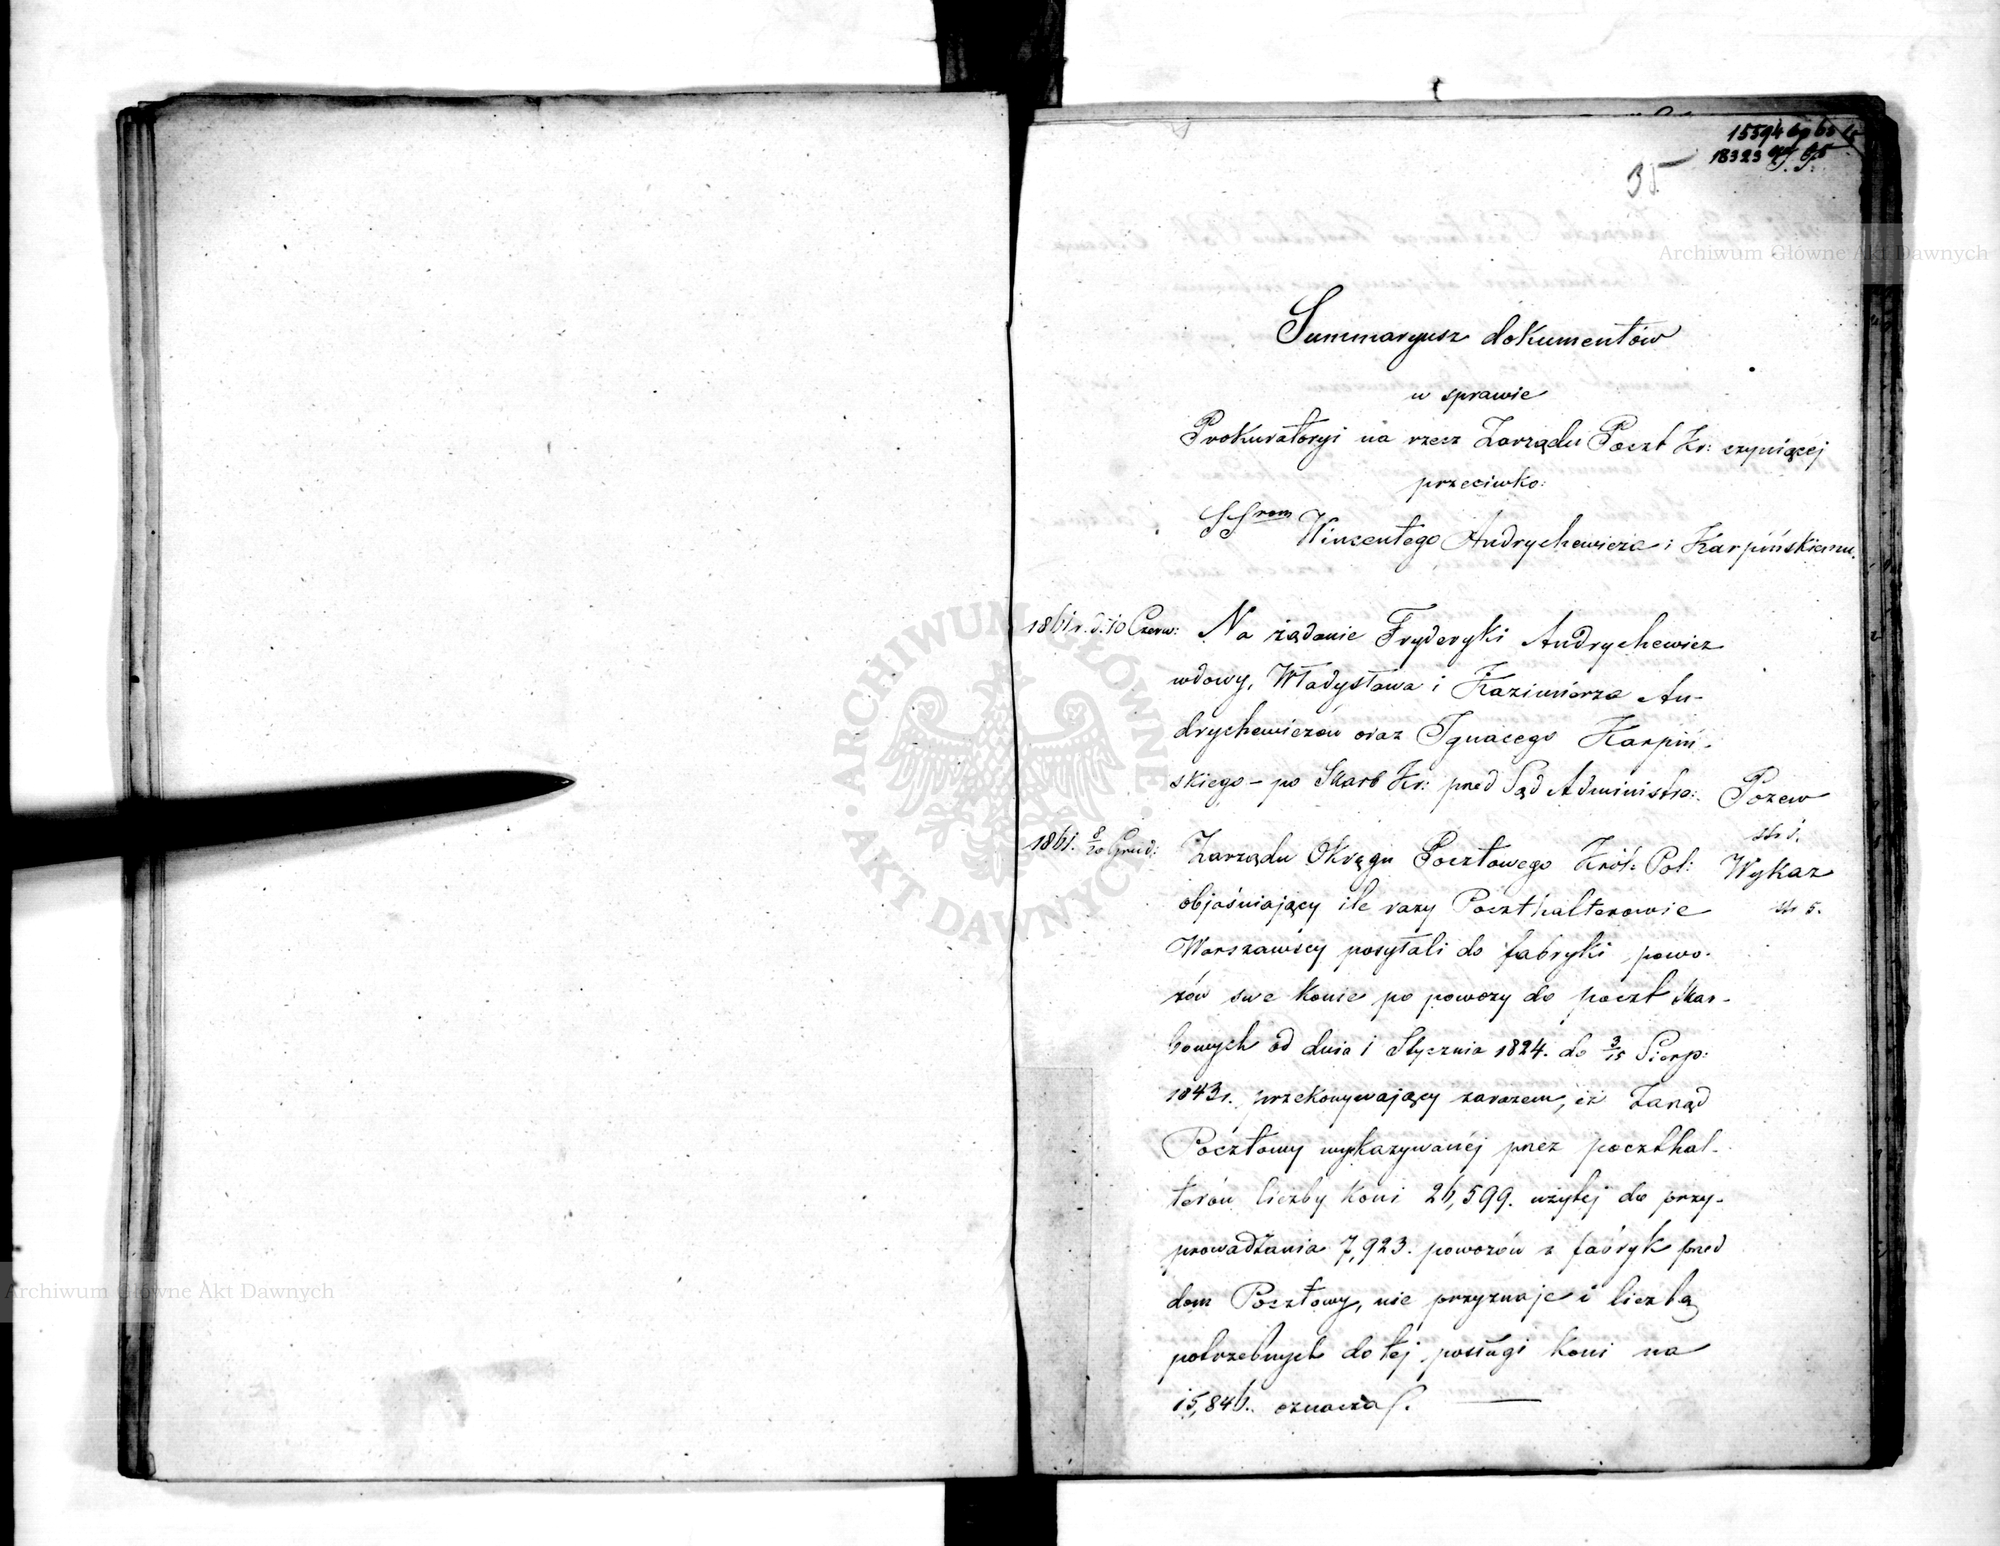 15594
18323
35
Summaryusz dokumentów
w sprawie
Prokuratoryi na rzecz Zarządu Poczt Kr: czyniącej
przeciwko:
SSrom Wincentego Andrychewicza i Karpińskiemu.
1861 r. d. 10 Czerw: Na żądanie Fryderyki Andrychewicz
wdowy, Władysława i Kazimierza An-
drychewiczów oraz Ignacego Karpiń-
skiego – po Skarb Kr: pned Sąd Administra: Pozew
str 1.
1861. 8/20 Grud: Zarządu Okręgu Pocztowego Król: Pol: Wykaz
objaśniający ile razy Poczthalterowie str 5.
Warszawscy posyłali do fabryki powo-
zów swe konie po powozy do poczt skar-
bowych od dnia 1 Stycznia 1824. do 3/15 Sierp:
1843 r. przekonywający zarazem, iż Zarząd
Pocztowy wykazywanéj pnez poczthal-
terów liczby koni 26,599. użytej do przy-
prowadzania 7,923. powozów z fabryk pned
dom Pocztowy, nie przyznaje i liczbę
potrzebnych do tej posługi koni na
15,846. oznacza.
ARCHIWUM GŁÓWNE
AKT DAWNYCH
Archiwum Główne Akt Dawnych
Archiwum Główne Akt Dawnych